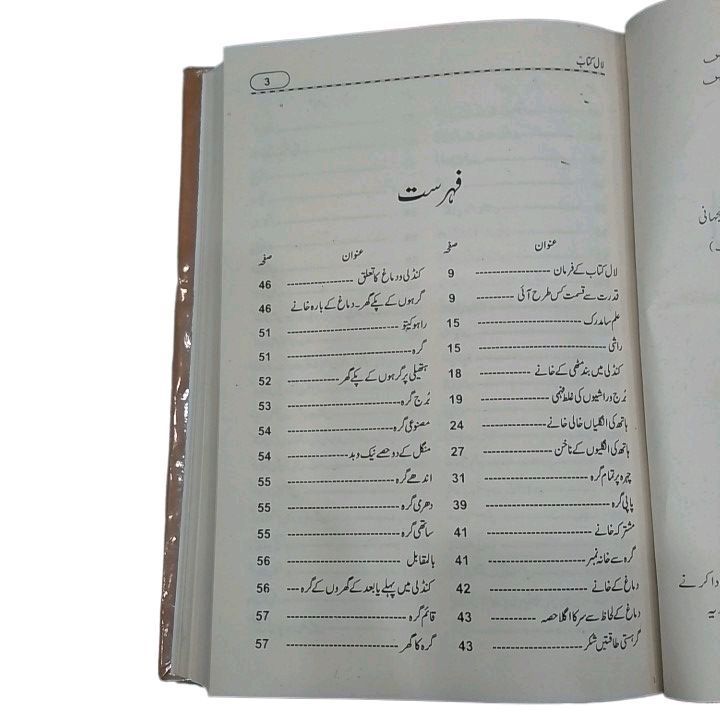 لال کتاب
3
فہرست
عنوان صفحہ
لال کتاب کے فرمان ------------------ 9
قدرت سے قسمت کس طرح آئی --------- 9
علم سامدرک ------------------------- 15
راشی ------------------------- 15
کنڈلی میں بند مٹھی کے خانے ------------- 18
بُرج و راشیوں کی غلط فہمی ------------- 19
ہاتھ کی انگلیاں خالی خانے -------------- 24
ہاتھ کی انگلیوں کے ناخن -------------- 27
چہرہ پر تمام گرہ ------------------------- 31
پاپی گرہ ------------------------- 39
مشترکہ خانے ------------------------- 41
گرہ سے خانہ نمبر ------------------ 41
دماغ کے خانے ------------------ 42
دماغ کے لحاظ سے سر کا اگلا حصہ ------------- 43
گرہستی طاقتیں شکر ------------------ 43
عنوان صفحہ
کنڈلی و دماغ کا تعلق ---------------- 46
گرہوں کے پکے گھر۔ دماغ کے بارہ خانے 46
راہو کیتو -------------------------- 51
گرہ -------------------------- 51
ہتھیلی پر گرہوں کے پکے گھر ------------ 52
بُرج گرہ -------------------------- 53
مصنوعی گرہ -------------------------- 54
منگل کے دو حصے نیک و بد -------------- 54
اندھے گرہ -------------------------- 55
دھرمی گرہ -------------------------- 55
ساتھی گرہ -------------------------- 55
بالمقابل -------------------------- 56
کنڈلی میں پہلے یا بعد کے گھروں کے گرہ --- 56
قائم گرہ -------------------------- 57
گرہ کا گھر -------------------------- 57
جہانی
دا کرنے
یہ